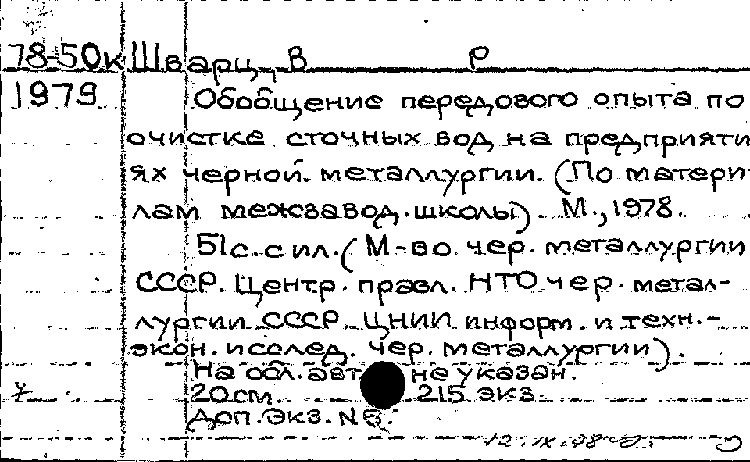 78-50к Шварц, В Р
1979 Обобщение передового опыта по
очистке сточных вод на предприяти
ях черной металлургии. (По матери-
лам межзавод. школы) М., 1978.
51с. с ил. (М-во. чер. металлургии
СССР. Центр. правл. НТО чер. метал-
лургии СССР. ЦНИИ информ. и техн.-
экон. исслед. чер. металлургии).
На обл. авт не указан.
20см. 215 экз.
Доп. экз. №